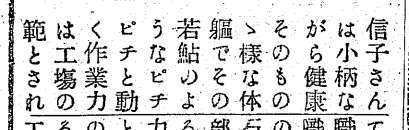 信子さん
は小柄な
がら健康
そのもの
ゝ様な体
軀でその
若鮎のよ
うなピチ
ピチと動
く作業力
は工塲の
範とされ